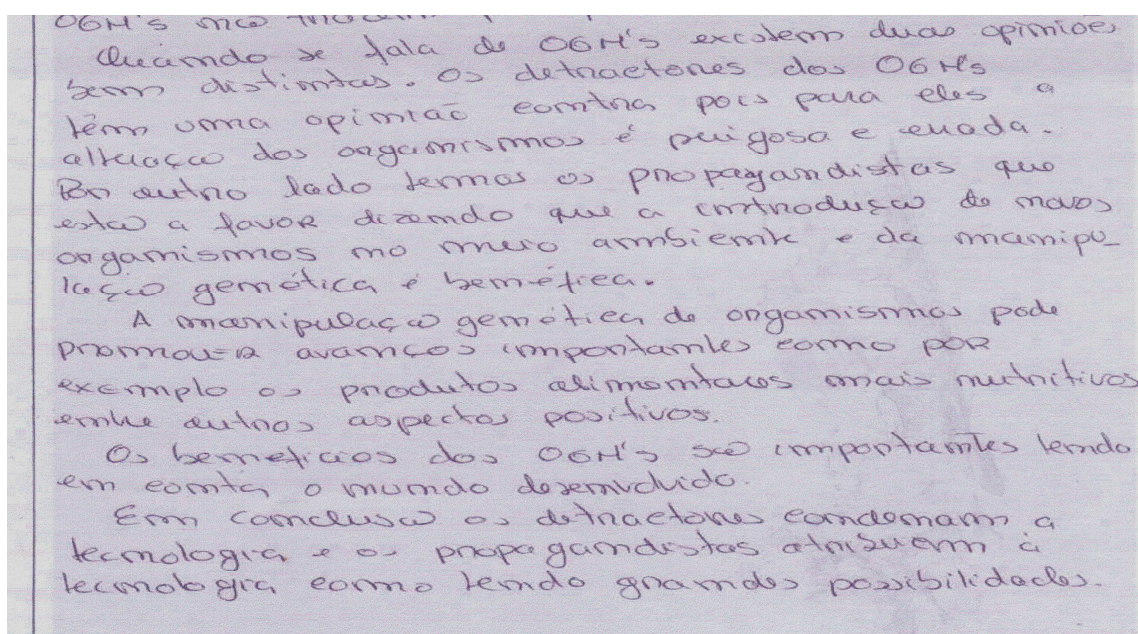 OGM's
Quando se fala de OGM's existem duas opiniões
bem distintas. Os detractores dos OGM's
têm uma opinião contra pois para eles a
alteração dos organismos é perigosa e errada.
Por outro lado temos os propagandistas que
estão a favor dizendo que a introdução de novos
organismos no meio ambiente e da manipu-
lação genética é benéfica.
A manipulação genética de organismos pode
promover avanços importantes como por
exemplo os produtos alimentares mais nutritivos
entre outros aspectos positivos.
Os beneficios dos OGM's são importantes tendo
em conta o mundo desenvolvido.
Em conclusão os detractores condenam a
tecnologia e os propagandistas atribuem à
tecnologia como tendo grandes possibilidades.